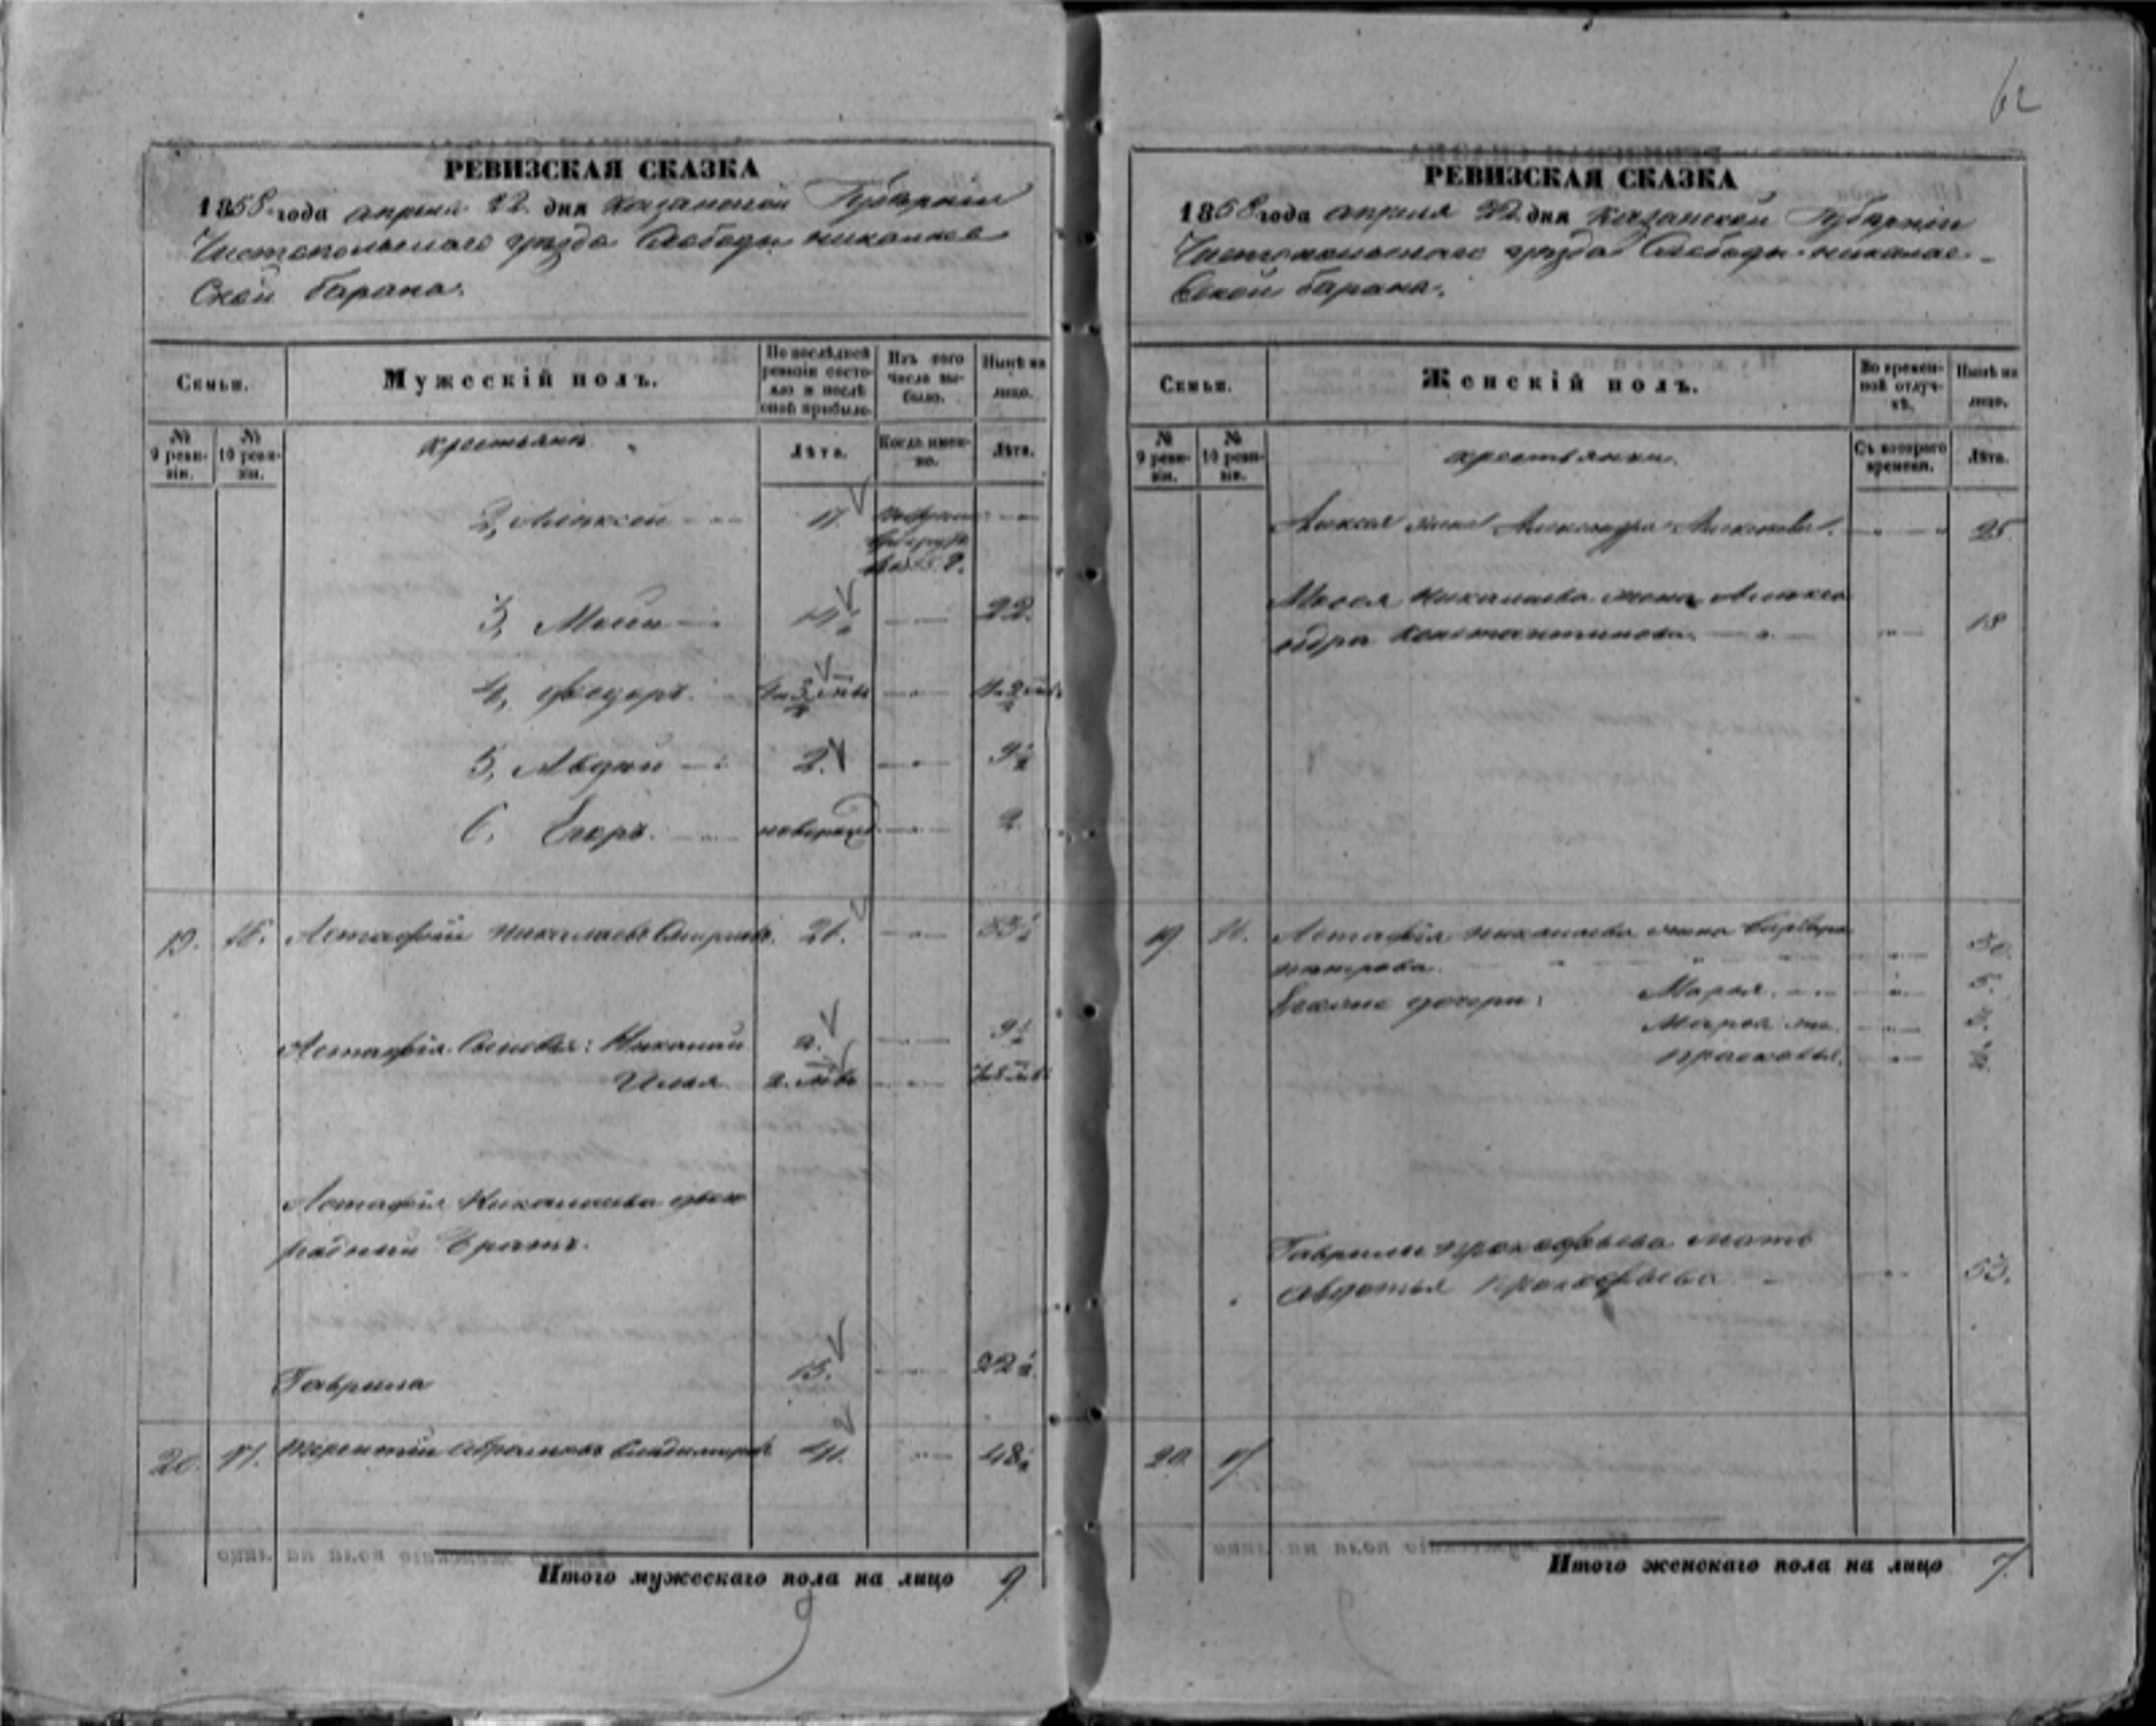 РЕВИЗСКАЯ СКАЗКА
1858 года апреля 22 дня Казанской Губернии
Чистопольскаго уезда Слободы николаев
ской барана.
Семьи.
Мужескій полъ.
По послѣдней ревизіи состояло и послѣ оной прибыло.
Изъ того числа выбыло.
Нынѣ на лицо.
№ 9 ревизіи.
№ 10 ревизіи.
крестьяне
Лѣта.
Когда именно.
Лѣта.
2, Алексей
3, Мосей 22.
4, федоръ.
5, Авдей 2. 9½
6, Егоръ. новорожд 2
19. 16. Астафий николаевъ 33½
Астафія Сыновья: Николай 2. 9½
Илья
Астафія Николаева двою
родный Братъ.
Гаврила 15. 22½
20. 17. терентий Абрамовъ 41. 48½
Итого мужескаго пола на лицо 9
62
РЕВИЗСКАЯ СКАЗКА
1858 года апреля 22 дня Казанской Губернии
Чистопольскаго уезда Слободы николае-
вской барана.
Семьи.
Женскій полъ.
Во временной отлучкѣ.
Нынѣ на лицо.
№ 9 ревизіи.
№ 10 ревизіи.
крестьянки.
Съ котораго времени.
Лѣта.
Алексея жена Александра 25
Мосея николаева жена Алекса
ндра Константинова 18
19 16. Астафія николаева жена варвара
петрова. 30.
Евоные дочери: Марья. 5.
Марья же.
прасковья.
Гаврилы прокофьева мать
авдотья прокофьева 53.
20. 17
Итого женскаго пола на лицо 7.